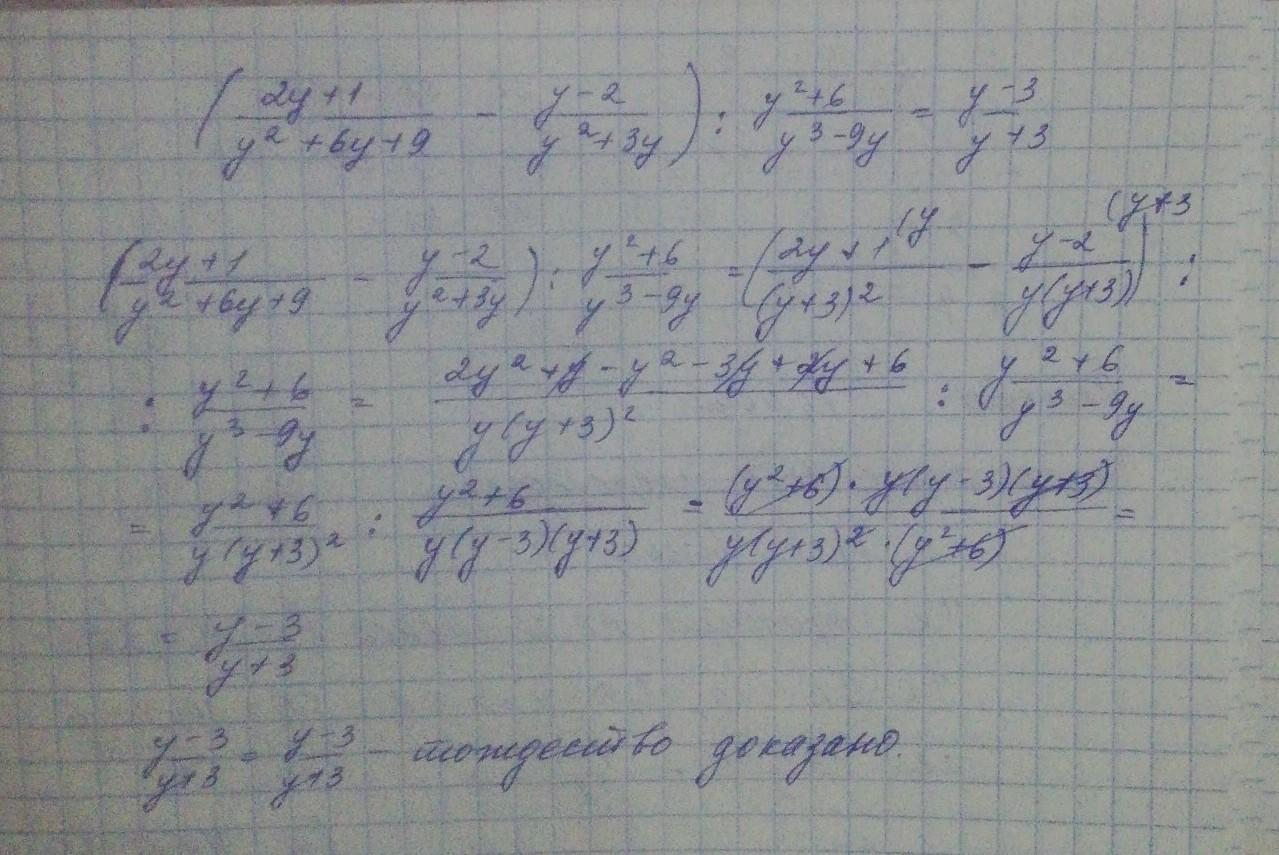 (2y+1/(y²+6y+9) - (y-2)/(y²+3y)) : (y²+6)/(y³-9y) = (y-3)/(y+3)
((2y+1)/(y²+6y+9) - (y-2)/(y²+3y)) : (y²+6)/(y³-9y) = ((2y+1)/(y+3)² (y - (y-2)/(y(y+3))) (y+3 :
: (y²+6)/(y³-9y) = (2y²+y-y²-3y+2y+6)/(y(y+3)²) : (y²+6)/(y³-9y) =
= (y²+6)/(y(y+3)²) : (y²+6)/(y(y-3)(y+3)) = ((y²+6)·y(y-3)(y+3))/(y(y+3)²·(y²+6)) =
= (y-3)/(y+3)
(y-3)/(y+3) = (y-3)/(y+3) - тождество доказано.